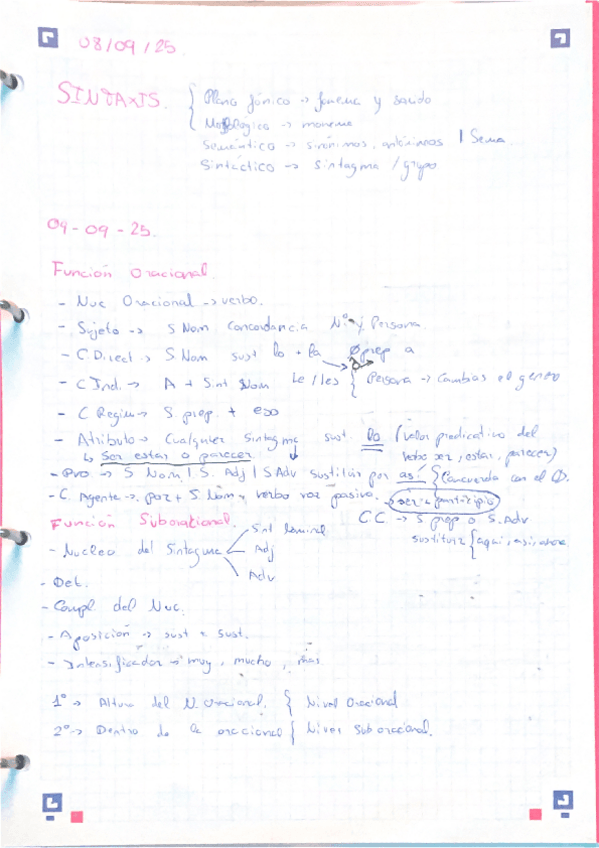 08/09/25.
SINTAXIS. { Plano fónico → fonema y sonido
Morfológico → monema
Semántico → sinónimos, antónimos | Sema
Sintáctico → Sintagma / grupo
09-09-25.
Función Oracional.
- Nuc Oracional → verbo.
- Sujeto → S Nom Concordancia Nº y Persona
- C Direct. → S Nom sust lo + la Ø prep a
- C Ind. → A + Sint Nom le/les { Persona → Cambias el genero
- C Regim → S. prep. + eso
- Atributo → Cualquier Sintagma sust. lo (valor predicativo del
↳ Ser estar o parecer ↓ verbo ser, estar, parecer)
- Pvo → S Nom. | S. Adj | S Adv sustituir por así { Concuerda con el
- C. Agente → por + S. Nom y verbo voz pasiva. → ser + participio
Función Suboracional. C.C. → S prep o S. Adv
- Nucleo del Sintagma Sint Nominal sustituir { aqui, asi, ahora
Adj
Adv
- Det.
- Compl del Nuc.
- Aposición → sust + sust.
- Intensificador → muy, mucho, más
1º → Altura del N. Oracional. { Nivel Oracional
2º → Dentro de la oracional { Nivel Suboracional.